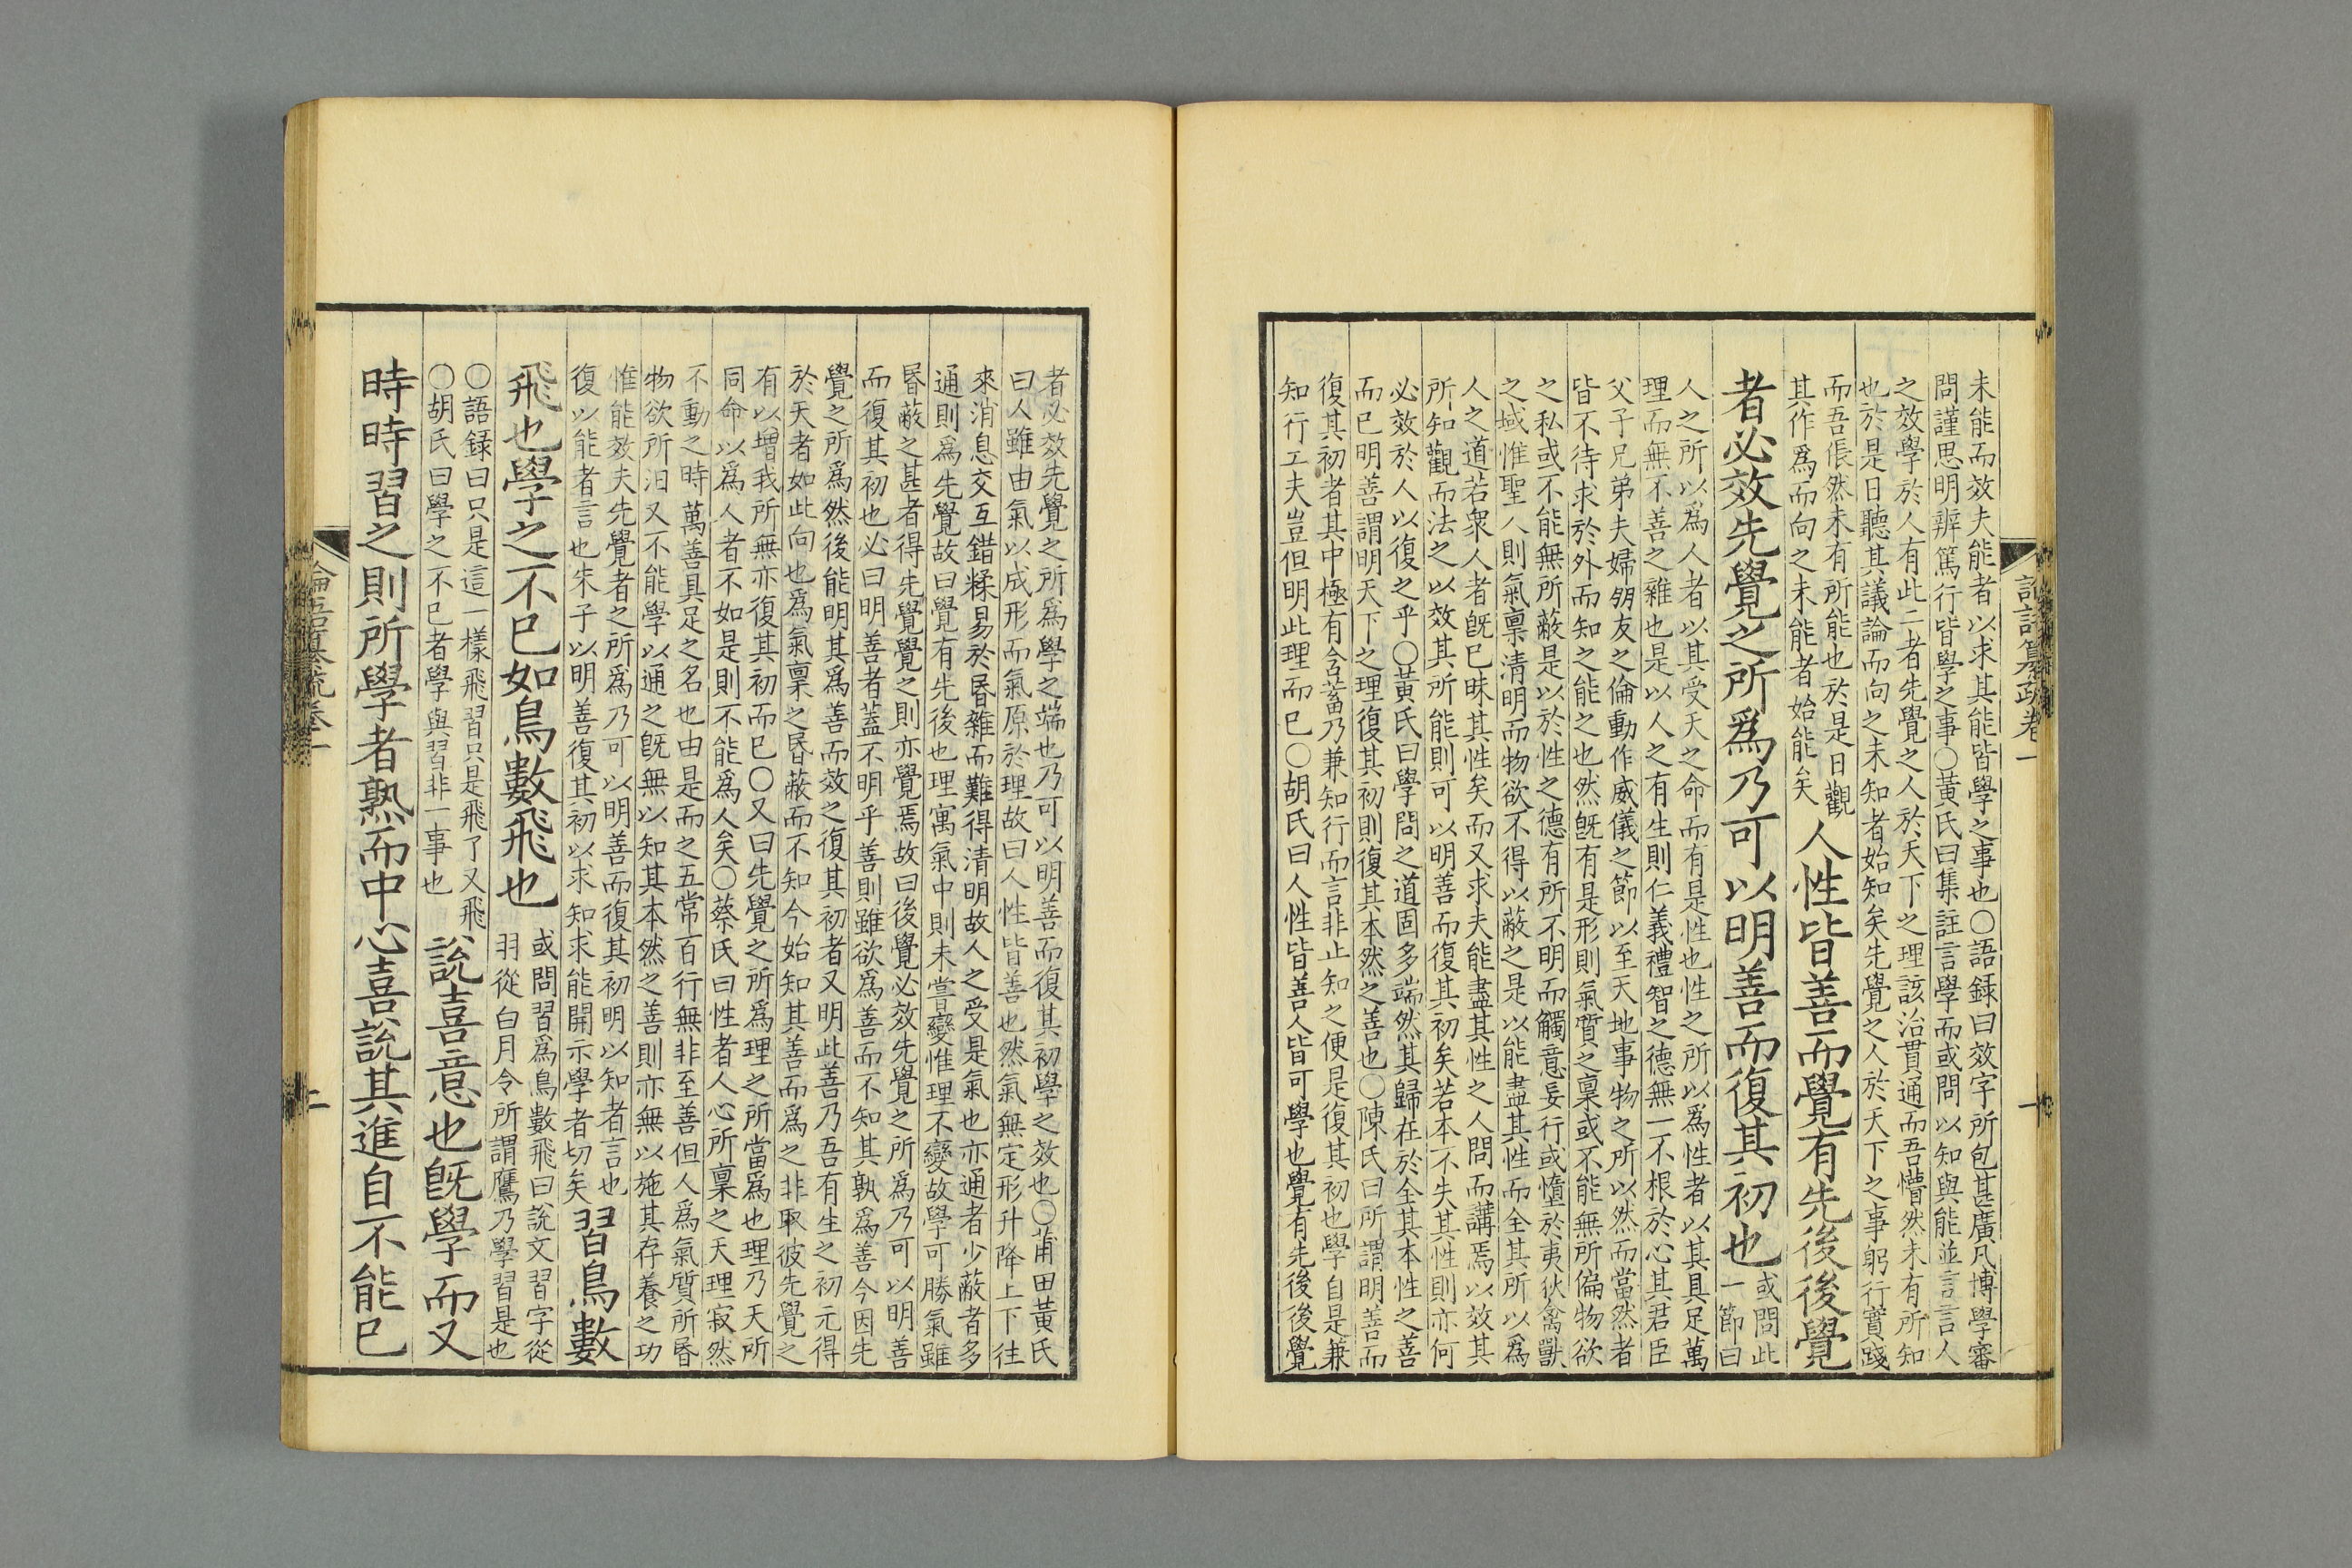 未能而效夫能者以求其能皆學之事也〇語錄曰效字所包甚廣凡博學審
問謹思明辨篤行皆學之事〇黃氏曰集註言學而或問以知與能並言言人
之效學於人有此二者先覺之人於天下之理該洽貫通而吾懵然未有所知
也於是日聽其議論而向之未知者始知矣先覺之人於天下之事躬行實踐
而吾倀然未有所能也於是日觀
其作爲而向之未能者始能矣
人性皆善而覺有先後後覺
者必效先覺之所爲乃可以明善而復其初也
或問此
一節曰
人之所以爲人者以其受天之命而有是性也性之所以爲性者以其具足萬
理而無不善之雜也是以人之有生則仁義禮智之德無一不根於心其君臣
父子兄弟夫婦朋友之倫動作威儀之節以至天地事物之所以然而當然者
皆不待求於外而知之能之也然旣有是形則氣質之稟或不能無所偏物欲
之私或不能無所蔽是以於性之德有所不明而觸意妄行或墮於夷狄禽獸
之域惟聖人則氣稟清明而物欲不得以蔽之是以能盡其性而全其所以爲
人之道若衆人者旣已昧其性矣而又求夫能盡其性之人問而講焉以效其
所知觀而法之以效其所能則可以明善而復其初矣若本不失其性則亦何
必效於人以復之乎〇黃氏曰學問之道固多端然其歸在於全其本性之善
而已明善謂明天下之理復其初則復其本然之善也〇陳氏曰所謂明善而
復其初者其中極有含蓄乃兼知行而言非止知之便是復其初也學自是兼
知行工夫豈但明此理而已〇胡氏曰人性皆善人皆可學也覺有先後後覺
者必效先覺之所爲學之端也乃可以明善而復其初學之效也〇莆田黃氏
曰人雖由氣以成形而氣原於理故曰人性皆善也然氣無定形升降上下往
來消息交互錯糅易於昬雜而難得清明故人之受是氣也亦通者少蔽者多
通則爲先覺故曰覺有先後也理寓氣中則未嘗變惟理不變故學可勝氣雖
昬蔽之甚者得先覺覺之則亦覺焉故曰後覺必效先覺之所爲乃可以明善
而復其初也必曰明善者蓋不明乎善則雖欲爲善而不知其孰爲善今因先
覺之所爲然後能明其爲善而效之復其初者又明此善乃吾有生之初元得
於天者如此向也爲氣稟之昬蔽而不知今始知其善而爲之非取彼先覺之
有以增我所無亦復其初而已〇又曰先覺之所爲理之所當爲也理乃天所
同命以爲人者不如是則不能爲人矣〇蔡氏曰性者人心所稟之天理寂然
不動之時萬善具足之名也由是而之五常百行無非至善但人爲氣質所昬
物欲所汩又不能學以通之旣無以知其本然之善則亦無以施其存養之功
惟能效夫先覺者之所爲乃可以明善而復其初明以知者言也
復以能者言也朱子以明善復其初以求知求能開示學者切矣
習鳥數
飛也學之不已如鳥數飛也
或問習爲鳥數飛曰說文習字從
羽從白月令所謂鷹乃學習是也
〇語錄曰只是這一樣飛習只是飛了又飛
〇胡氏曰學之不已者學與習非一事也
說喜意也旣學而又
時時習之則所學者熟而中心喜說其進自不能已
論語纂疏卷一
一
論語纂疏卷一
二